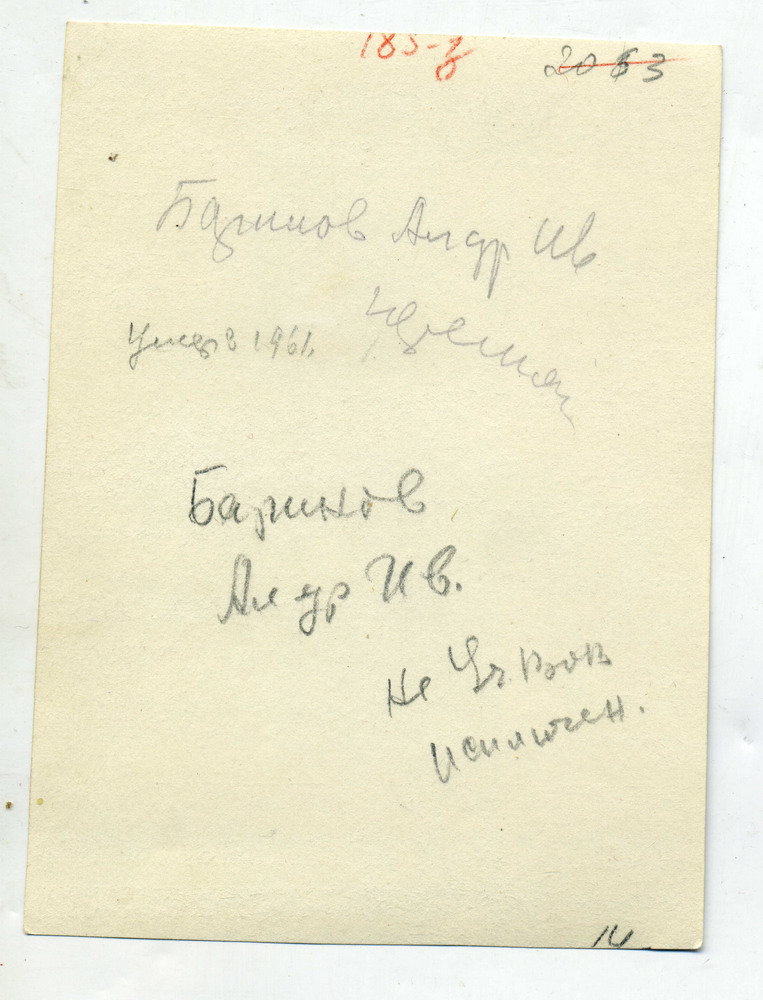 185-з 2063
Баринов Алдр Ив
Умер в 1961.
Баринов
Алдр Ив.
Не Уч. ВОВ
исключен.
14